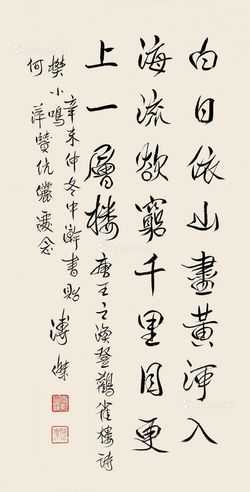 白日依山盡黄河入
海流欲窮千里目更
上一層樓 唐王之渙登鸛雀樓詩
辛未仲冬中澣書贻 溥傑
樊小鳴
何萍贊伉儷霎念